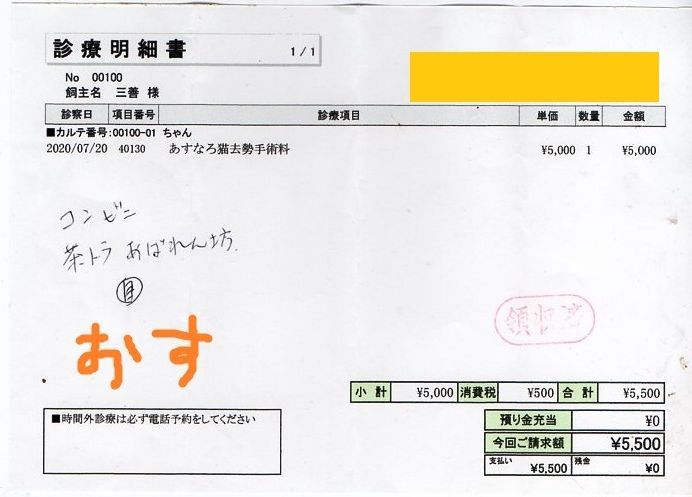 診療明細書
1/1
No 00100
飼主名 三善 様
診察日 項目番号 診療項目 単価 数量 金額
■カルテ番号:00100-01 ちゃん
2020/07/20 40130 あすなろ猫去勢手術料 ¥5,000 1 ¥5,000
コンビニ
茶トラ あばれん坊
領収済
おす
小計 ¥5,000 消費税 ¥500 合計 ¥5,500
■時間外診療は必ず電話予約をしてください
預り金充当 ¥0
今回ご請求額 ¥5,500
支払い ¥5,500 残金 ¥0